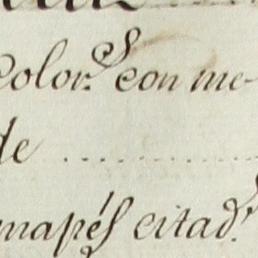 Color.^s con me-
de ...............
mapés citad.^s